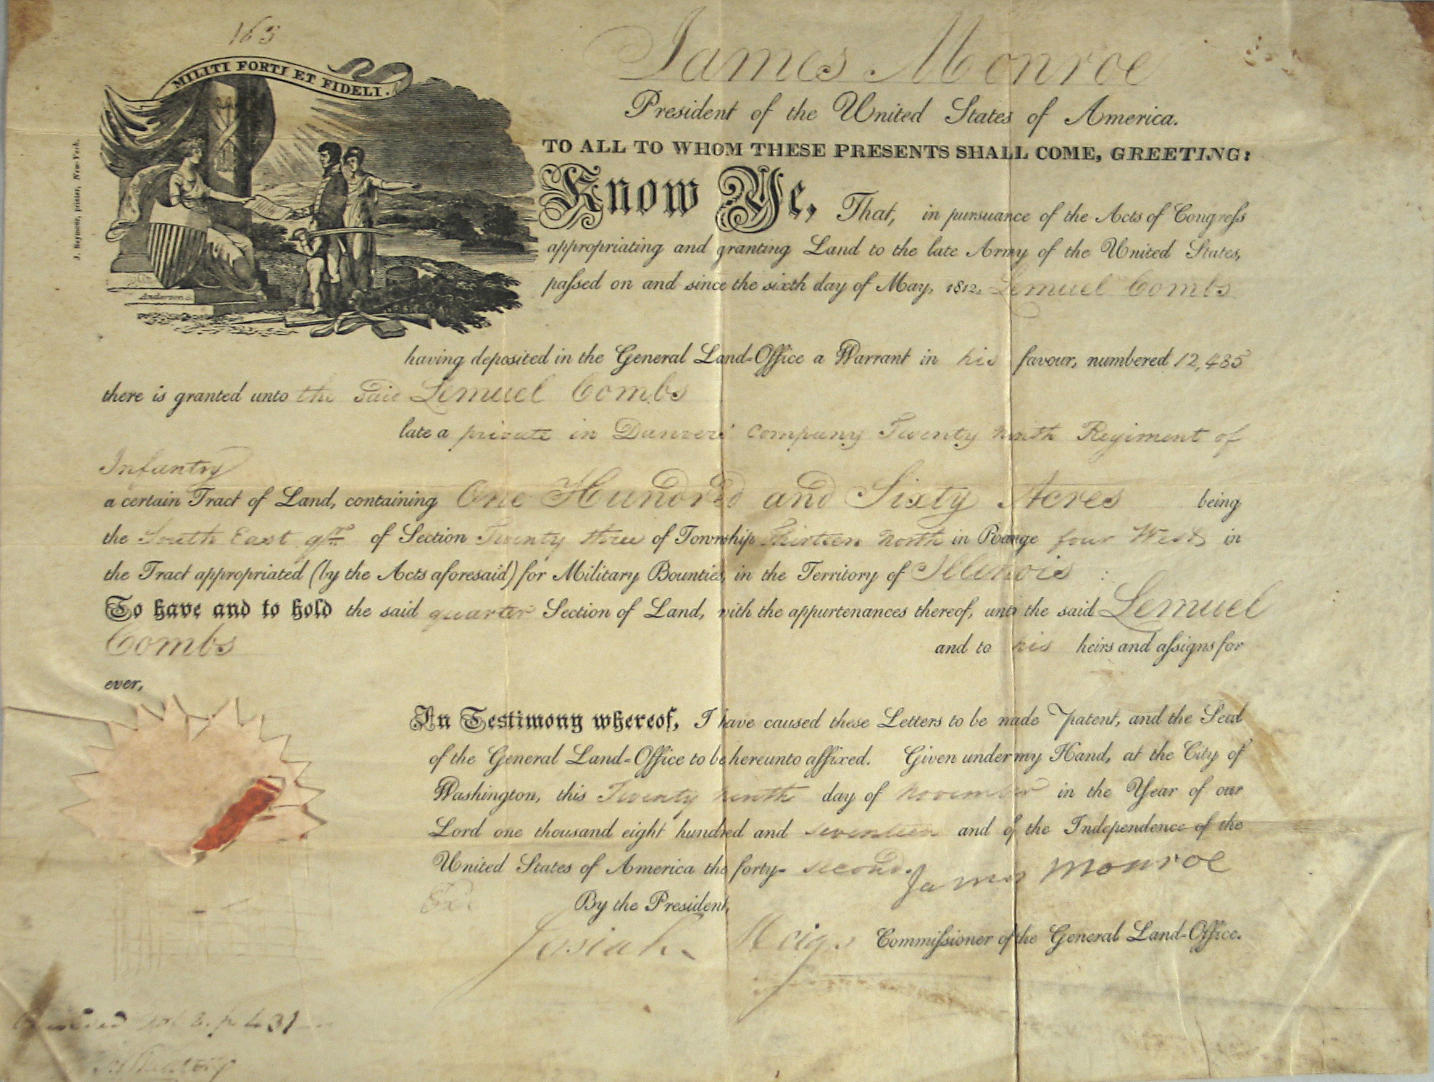 165
MILITI FORTI ET FIDELI.
J. Seymour, printer, New-York.
Anderson
James Monroe
President of the United States of America.
TO ALL TO WHOM THESE PRESENTS SHALL COME, GREETING:
Know Ye, That, in pursuance of the Acts of Congress
appropriating and granting Land to the late Army of the United States,
passed on and since the sixth day of May, 1812, Lemuel Combs
having deposited in the General Land-Office a Warrant in his favour, numbered 12,485
there is granted unto the said Lemuel Combs
late a private in Danvers' Company Twenty ninth Regiment of
Infantry
a certain Tract of Land, containing One Hundred and Sixty Acres being
the South East qr of Section Twenty three of Township Thirteen North in Range four West in
the Tract appropriated (by the Acts aforesaid) for Military Bounties, in the Territory of Illinois :
To have and to hold the said quarter Section of Land, with the appurtenances thereof, unto the said Lemuel
Combs and to his heirs and assigns for
ever,
In Testimony whereof, I have caused these Letters to be made Patent, and the Seal
of the General Land-Office to be hereunto affixed. Given under my Hand, at the City of
Washington, this Twenty ninth day of November in the Year of our
Lord one thousand eight hundred and seventeen and of the Independence of the
United States of America the forty-second.
James Monroe
By the President,
Josiah Meigs Commissioner of the General Land-Office.
Recorded Vol 3. p 431